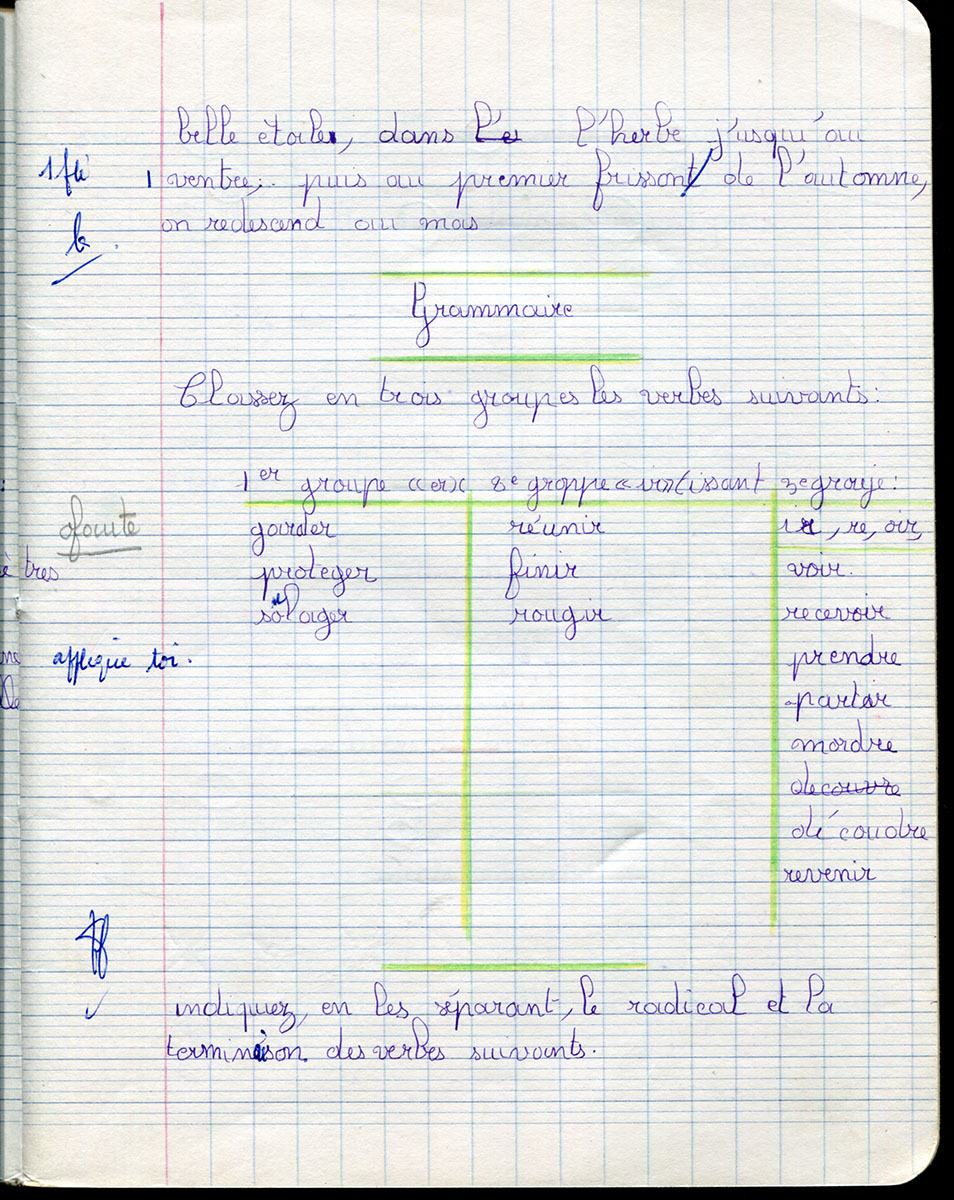 belle étoile, dans l'e l'herbe j'usqu'au
1 fte
ventre; puis au premier frissont de l'automne,
on redescend au mas
b.
Grammaire
Classez en trois groupes les verbes suivants:
1er groupe «er» 2e groppe «ir» (issant 3e groupe:
faute
garder réunir ir, re, oir,
è tres
proteger finir voir.
soulager rougir recevoir
applique toi. prendre
partir
mordre
decouvre
découdre
revenir
indiquez, en les séparant, le radical et la
terminaison des verbes suivants.